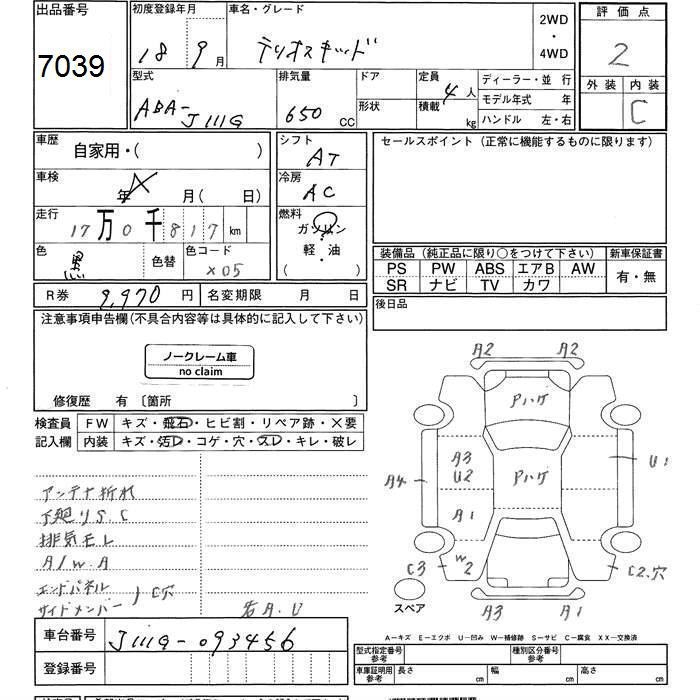 出品番号
7039
初度登録年月
18 9月
車名・グレード
テリオスキッド
2WD
・
4WD
評価点
2
外装 内装
C
型式
ABA-J111G
排気量
650 CC
ドア
形状
定員
4人
積載 kg
ディーラー・並 行
モデル年式 年
ハンドル 左・右
車歴
自家用・( )
シフト
AT
セールスポイント(正常に機能するものに限ります)
車検
年 月( 日)
冷房
AC
走行
17万0千817km
燃料
ガソリン
・
軽・油
( )
色
黒
色替
色コード
X05
装備品(純正品に限り○をつけて下さい)
新車保証書
PS PW ABS エアB AW
SR ナビ TV カワ
有・無
R券 9,970円
名変期限 月 日
後日品
注意事項申告欄(不具合内容等は具体的に記入して下さい)
ノークレーム車
no claim
修復歴 有〔箇所 〕
検査員
記入欄
FW キズ・飛石・ヒビ割・リペア跡・×要
内装 キズ・汚レ・コゲ・穴・スレ・キレ・破レ
アンテナ折れ
下廻りS.C
排気モレ
A/W.A
エンドパネル
サイドメンバー
C穴
右A.U
A2 A2
Pハゲ
A3
U2
Pハゲ
U1
A4
A1
C3
W2
C2.穴
スペア
A3 A1
A-キズ E-エクボ U-凹み W-補修跡 S-サビ C-腐食 XX-交換済
車台番号
J111G-093456
登録番号
型式指定番号
参考
種別区分番号
参考
車庫証明用
参考
長さ cm
幅 cm
高さ cm